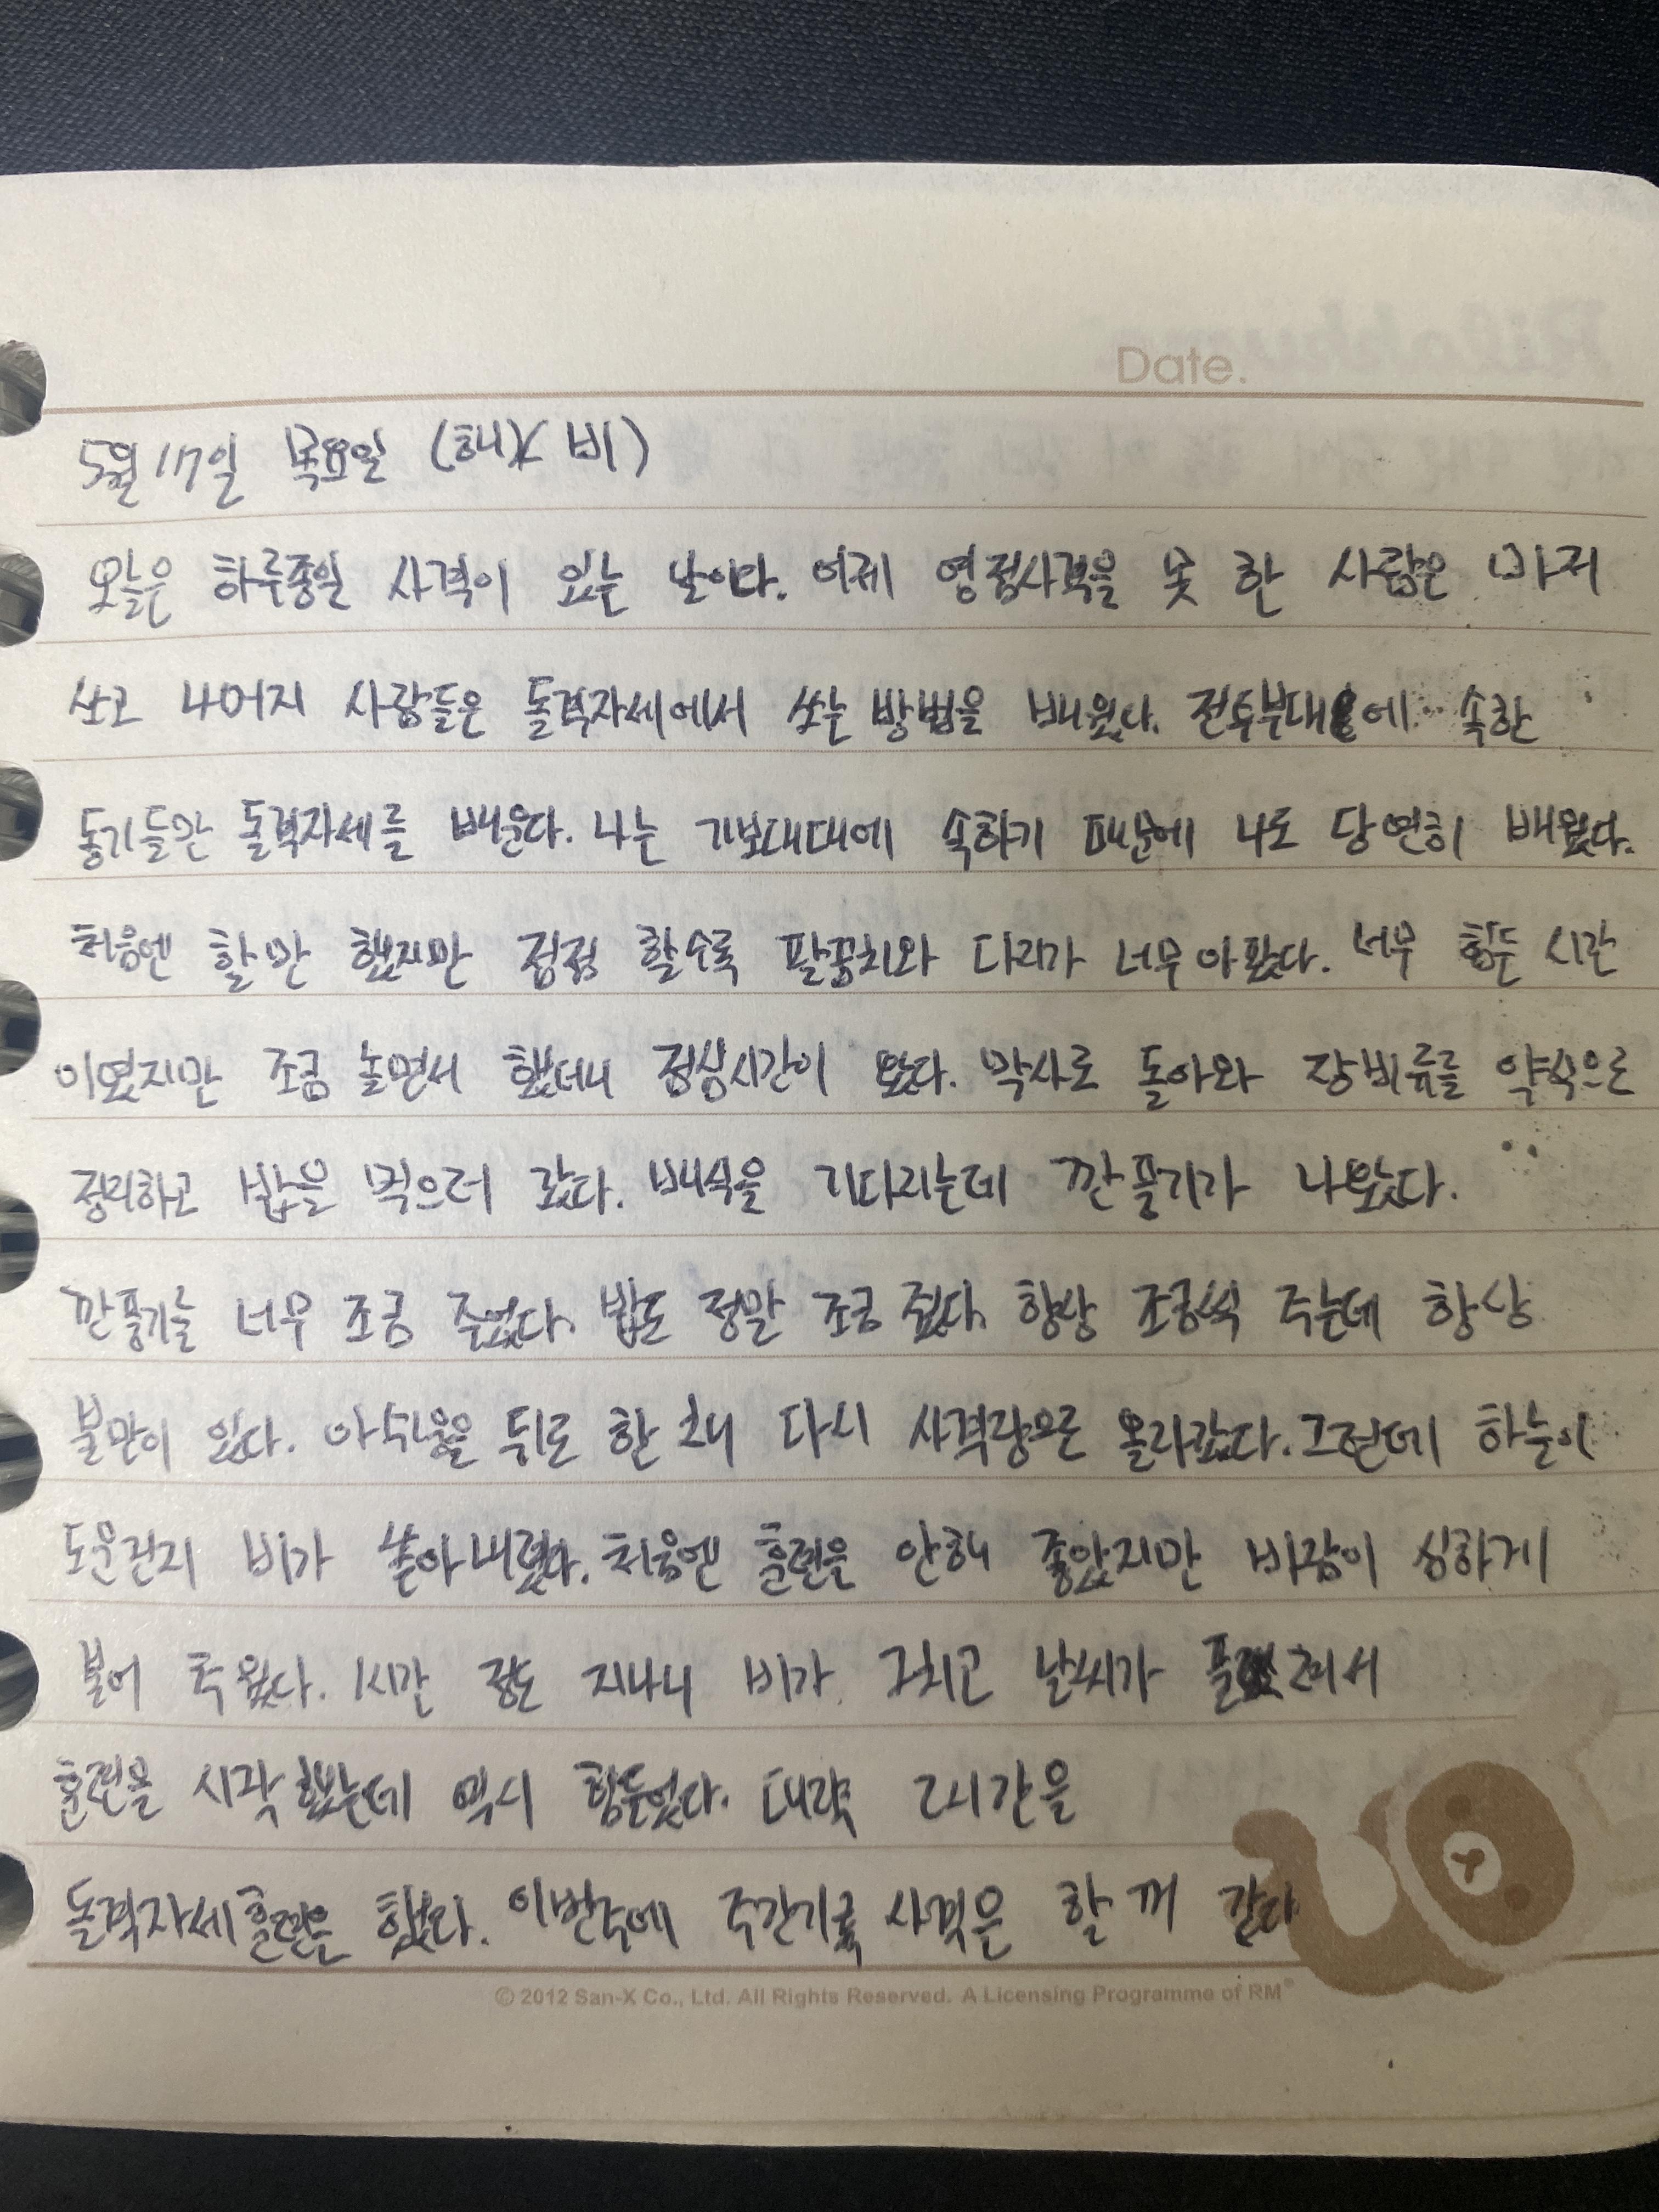 Date.
5월 17일 목요일 (해X 비)
오늘은 하루종일 사격이 있는 날이다. 어제 영점사격을 못 한 사람은 마저
쏘고 나머지 사람들은 돌격자세에서 쏘는 방법을 배웠다. 전투부대에 속한
동기들만 돌격자세를 배운다. 나는 기보대대에 속하기 때문에 나도 당연히 배웠다.
처음엔 할만 했지만 점점 할수록 팔꿈치와 다리가 너무 아팠다. 너무 힘든 시간
이였지만 조금 놀면서 했더니 점심시간이 왔다. 막사로 돌아와 장비류를 약식으로
정리하고 밥을 먹으러 갔다. 배식을 기다리는데 깐풍기가 나왔다.
깐풍기를 너무 조금 주었다. 밥도 정말 조금 줬다. 항상 조금씩 주는데 항상
불만이 있다. 아쉬움을 뒤로 한 채 다시 사격장으로 올라갔다. 그런데 하늘이
도운건지 비가 쏟아 내렸다. 처음엔 훈련을 안해 좋았지만 바람이 심하게
불어 추웠다. 1시간 정도 지나니 비가 그치고 날씨가 풀려서
훈련을 시작 했는데 역시 힘들었다. 대략 2시간을
돌격자세 훈련을 했다. 이번주에 주간기록 사격은 할 꺼 같다
© 2012 San-X Co., Ltd. All Rights Reserved. A Licensing Programme of RM®